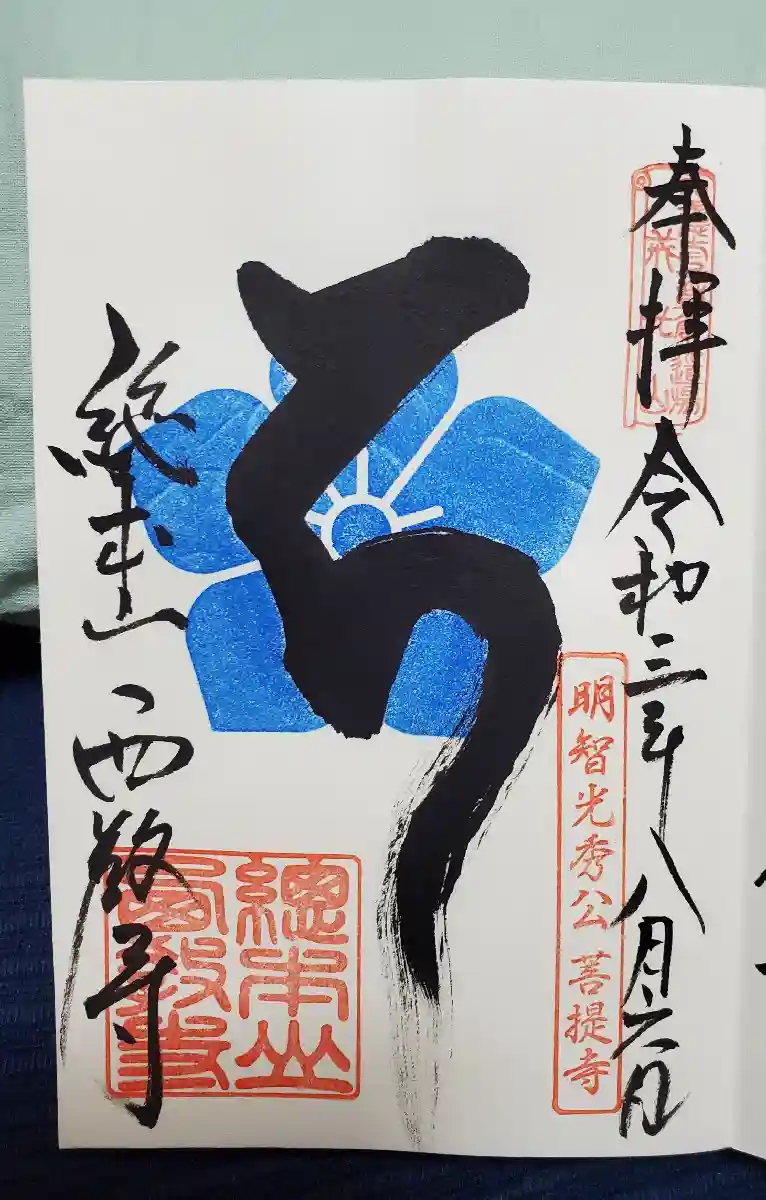 奉拝 令和三年八月六日
明智光秀公菩提寺
総本山 西教寺
總本山西教寺